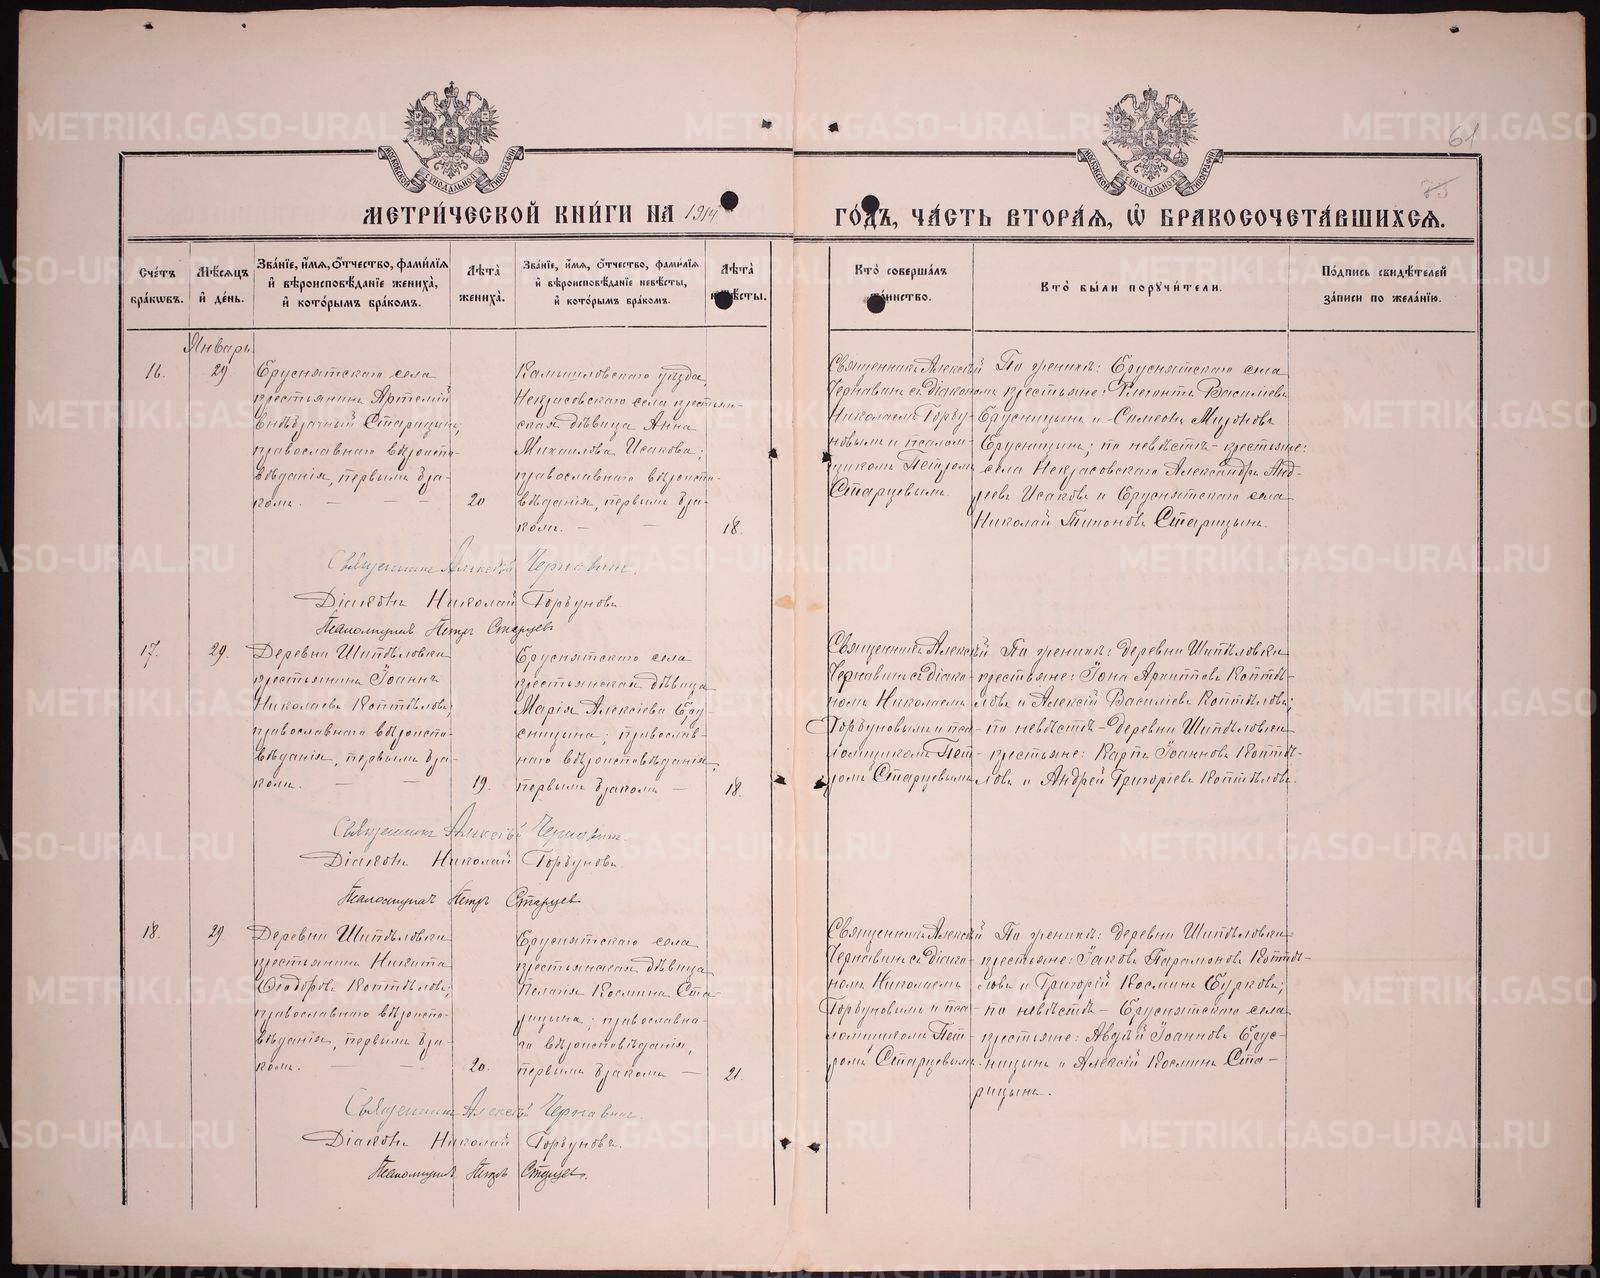 61
75
МЕТРИ́ЧЕСКОЙ КНИ́ГИ НА 1914
ГО́ДЪ, ЧА́СТЬ ВТОРА́Я, Ѽ БРАКОСОЧЕТА́ВШИХСЯ.
Сче́тъ бра́кѡвъ.
Мѣ́сяцъ и҆ де́нь.
Зва́нїе, и҆́мя, ѻ҆́тчество, фами́лїя и҆ вѣроисповѣ́данїе жениха̀, и҆ кото́рымъ бра́комъ.
Лѣта̀ жениха̀.
Зва́нїе, и҆́мя, ѻ҆́тчество, фами́лїя и҆ вѣроисповѣ́данїе невѣ́сты, и҆ кото́рымъ бра́комъ.
Лѣта̀
Кто̀ соверша́лъ таинство.
Кто̀ бы́ли порꙋчи́тели.
По́дпись свидѣ́телей за́писи по жела́нїю.
Январь
16.
29
Бруснятскаго села
крестьянинъ Артемій
внѣбрачный Старицынъ,
православнаго вѣроиспо-
вѣданія, первымъ бра-
комъ.
20
Камышловскаго уѣзда,
Некрасовскаго села крестьян-
ская дѣвица Анна
Михаилова Исакова;
православнаго вѣроиспо-
вѣданія, первымъ бра-
комъ.
18.
Священникъ Алексѣй
Чернавинъ съ діакономъ
Николаемъ Горбу-
новымъ и псалом-
щикомъ Петромъ
Старцевымъ.
По женихѣ: Бруснятскаго села
крестьяне: Флегонтъ Васильевъ
Брусницынъ и Симеонъ Миронов
Брусницынъ; по невѣстѣ – крестьяне:
села Некрасовскаго Александръ Анд-
реевъ Исаковъ и Бруснятскаго села
Николай Тихоновъ Старицынъ.
Священникъ Алексѣй Чернавинъ.
Діаконъ Николай Горбуновъ
Псаломщикъ Петръ Старцев
17.
29.
Деревни Шипѣловки
крестьянинъ Іоаннъ
Николаевъ Коптѣловъ,
православнаго вѣроиспо-
вѣданія, первымъ бра-
комъ.
19.
Бруснятскаго села
крестьянская дѣвица
Марія Алексіева Бру-
сницына; православ-
наго вѣроисповѣданія,
первымъ бракомъ
18.
Священникъ Алексѣй
Чернавинъ съ діако-
номъ Николаемъ
Горбуновымъ и пса-
ломщикомъ Пет-
ромъ Старцевымъ
По женихѣ: деревни Шипѣловки
крестьяне: Іона Архиповъ Коптѣ-
ловъ и Алексій Васильевъ Коптѣловъ;
по невѣстѣ – деревни Шипѣловки
крестьяне: Карпъ Іоанновъ Коптѣ-
ловъ и Андрей Григорьевъ Коптѣловъ.
Священникъ Алексѣй Чернавинъ.
Діаконъ Николай Горбуновъ
Псаломщикъ Петръ Старцев
18.
29.
Деревни Шипѣловки
крестьянинъ Никита
Ѳеодоровъ Коптѣловъ,
православнаго вѣроиспо-
вѣданія, первымъ бра-
комъ.
20.
Бруснятскаго села
крестьянская дѣвица
Пелагія Космина Ста-
рицына; православна-
го вѣроисповѣданія,
первымъ бракомъ
21.
Священникъ Алексѣй
Чернавинъ съ діако-
номъ Николаемъ
Горбуновымъ и пса-
ломщикомъ Пет-
ромъ Старцевымъ.
По женихѣ: деревни Шипѣловки
крестьяне: Іаковъ Парамоновъ Коптѣ-
ловъ и Григорій Косминъ Бурковъ;
по невѣстѣ – Бруснятскаго села
крестьяне: Авдѣй Іоанновъ Брус-
ницынъ и Алексій Косминъ Ста-
рицынъ.
Священникъ Алексѣй Чернавинъ.
Діаконъ Николай Горбуновъ.
Псаломщикъ Петръ Старцев.
METRIKI.GASO-URAL.RU